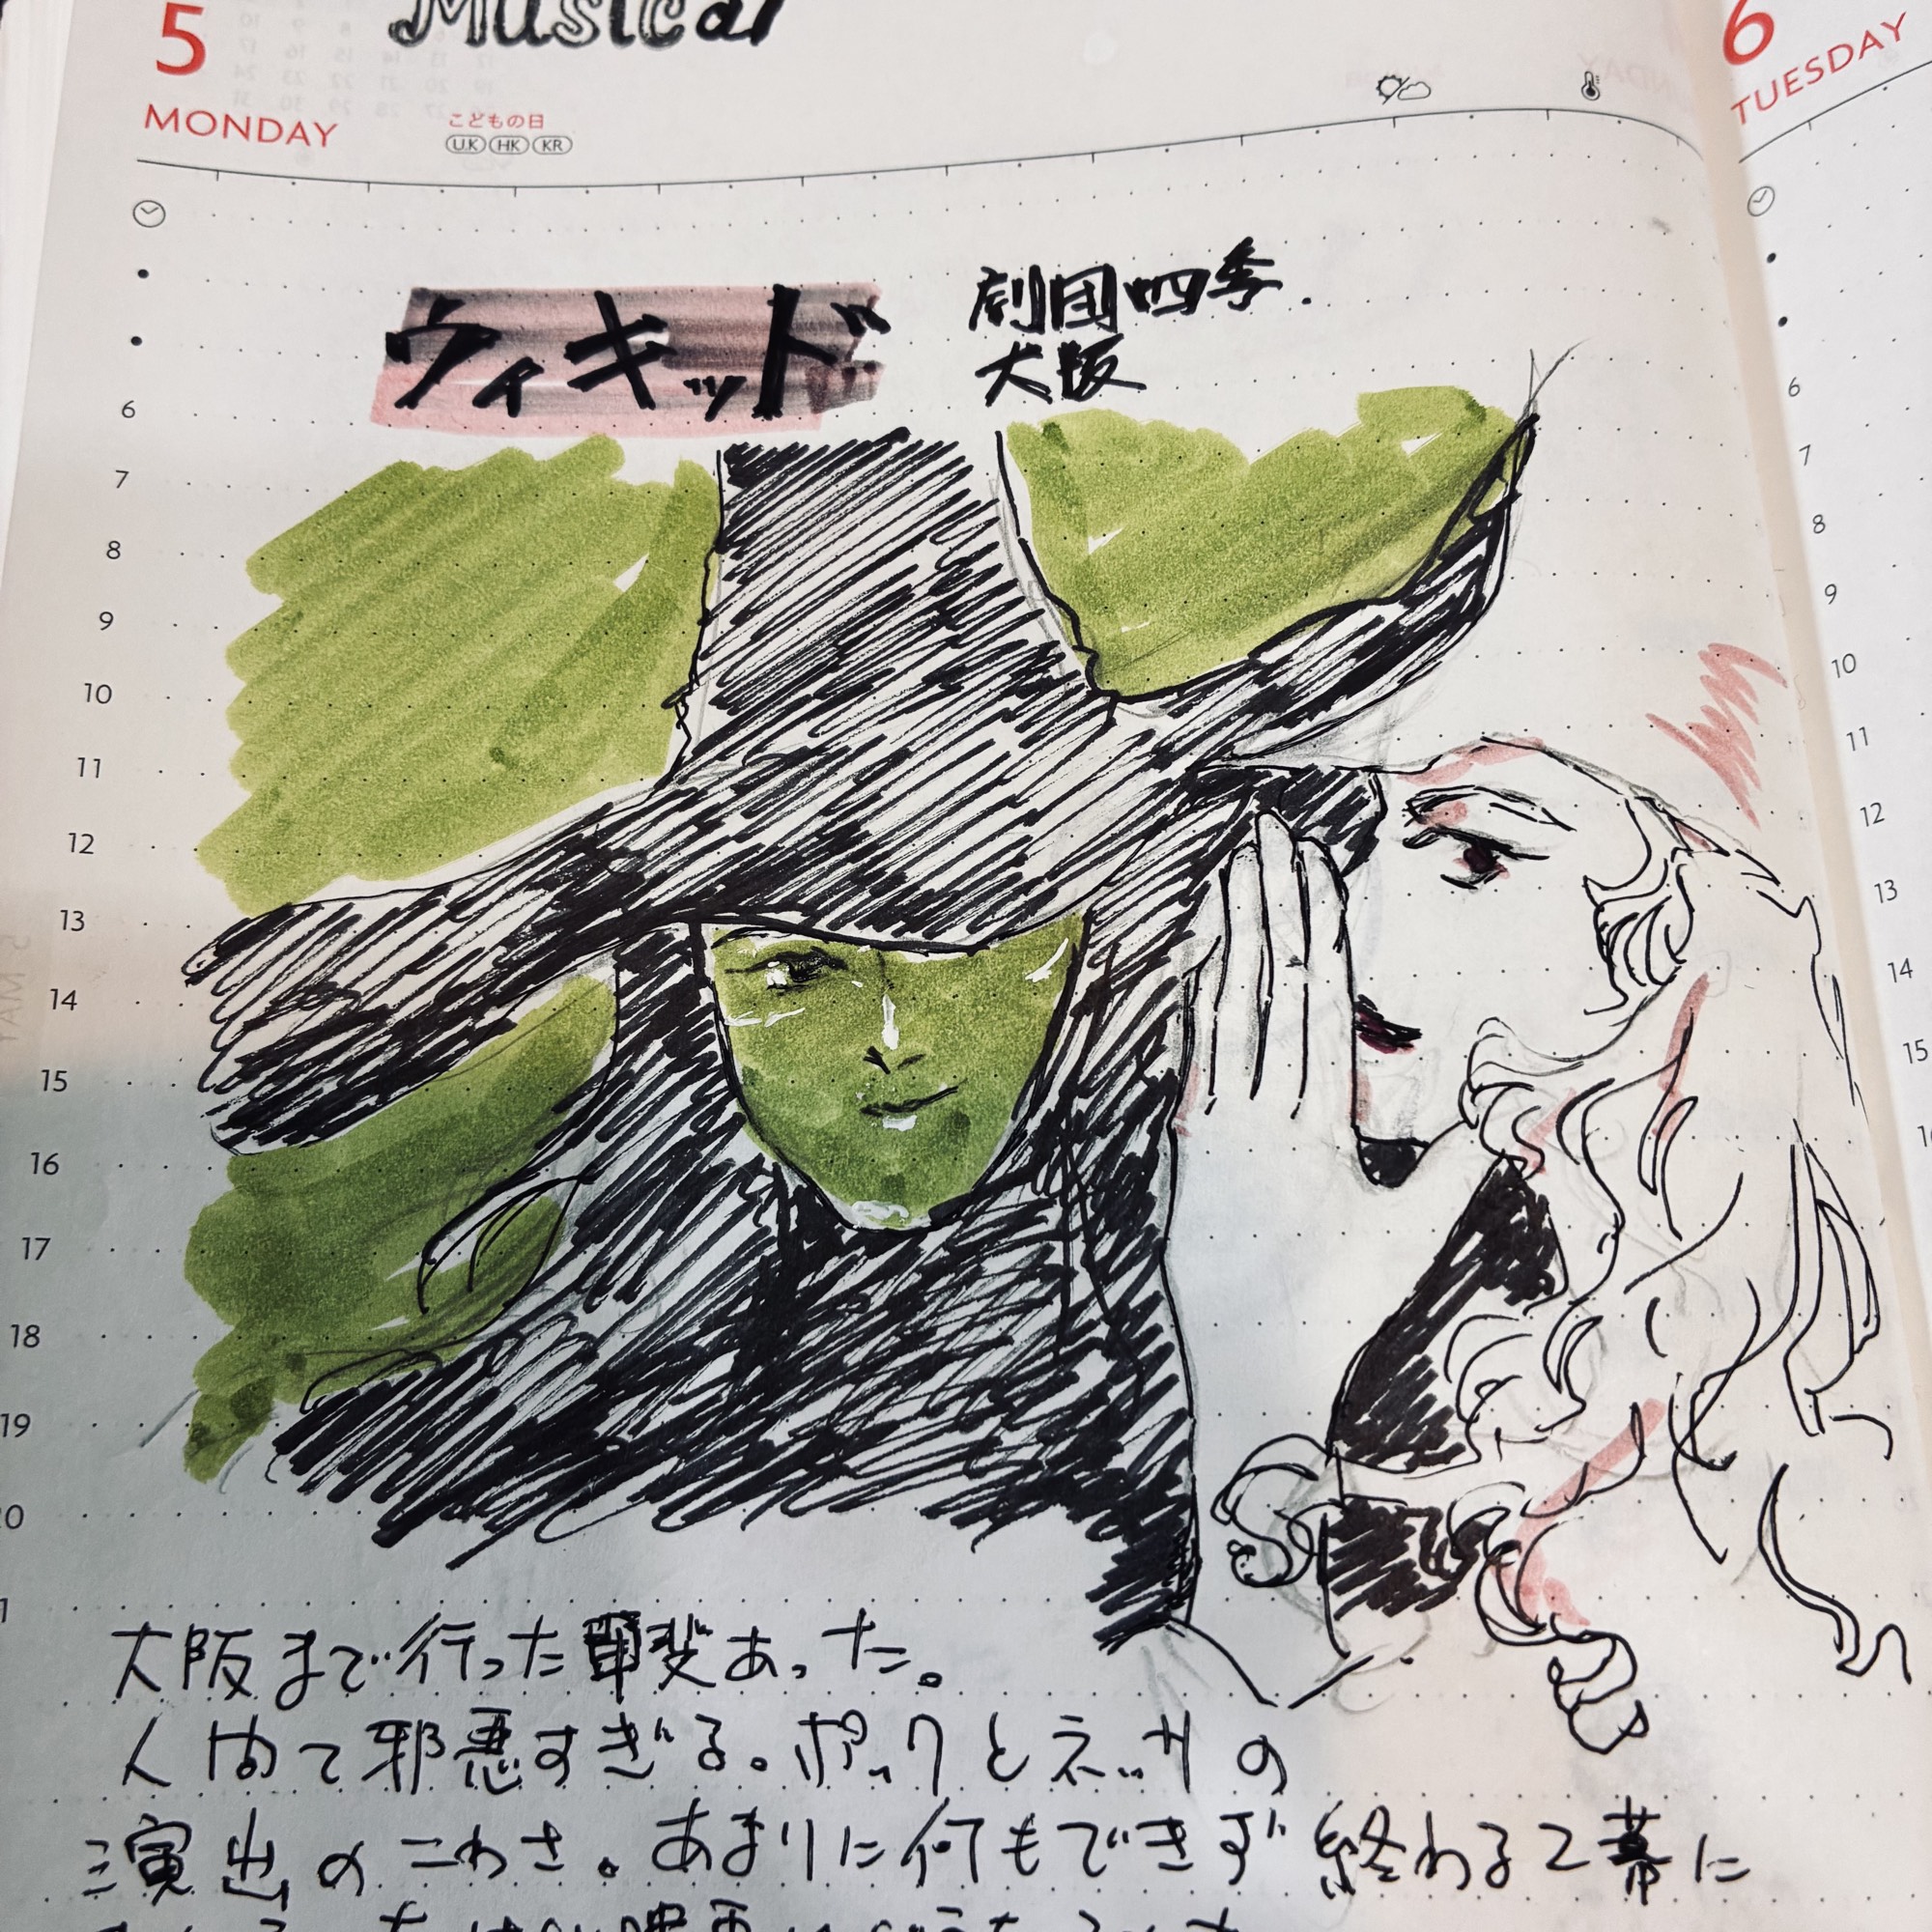 Musical
5
MONDAY
こどもの日
UK HK KR
6
TUESDAY
ウィキッド
劇団四季.
大阪
6
7
8
9
10
11
12
13
14
15
16
17
18
19
20
6
7
8
9
10
11
12
13
14
15
大阪まで行った甲斐あった。
人間て邪悪すぎる。ボックとネッサの
演出のこわさ。あまりに何もできず終わる2幕に